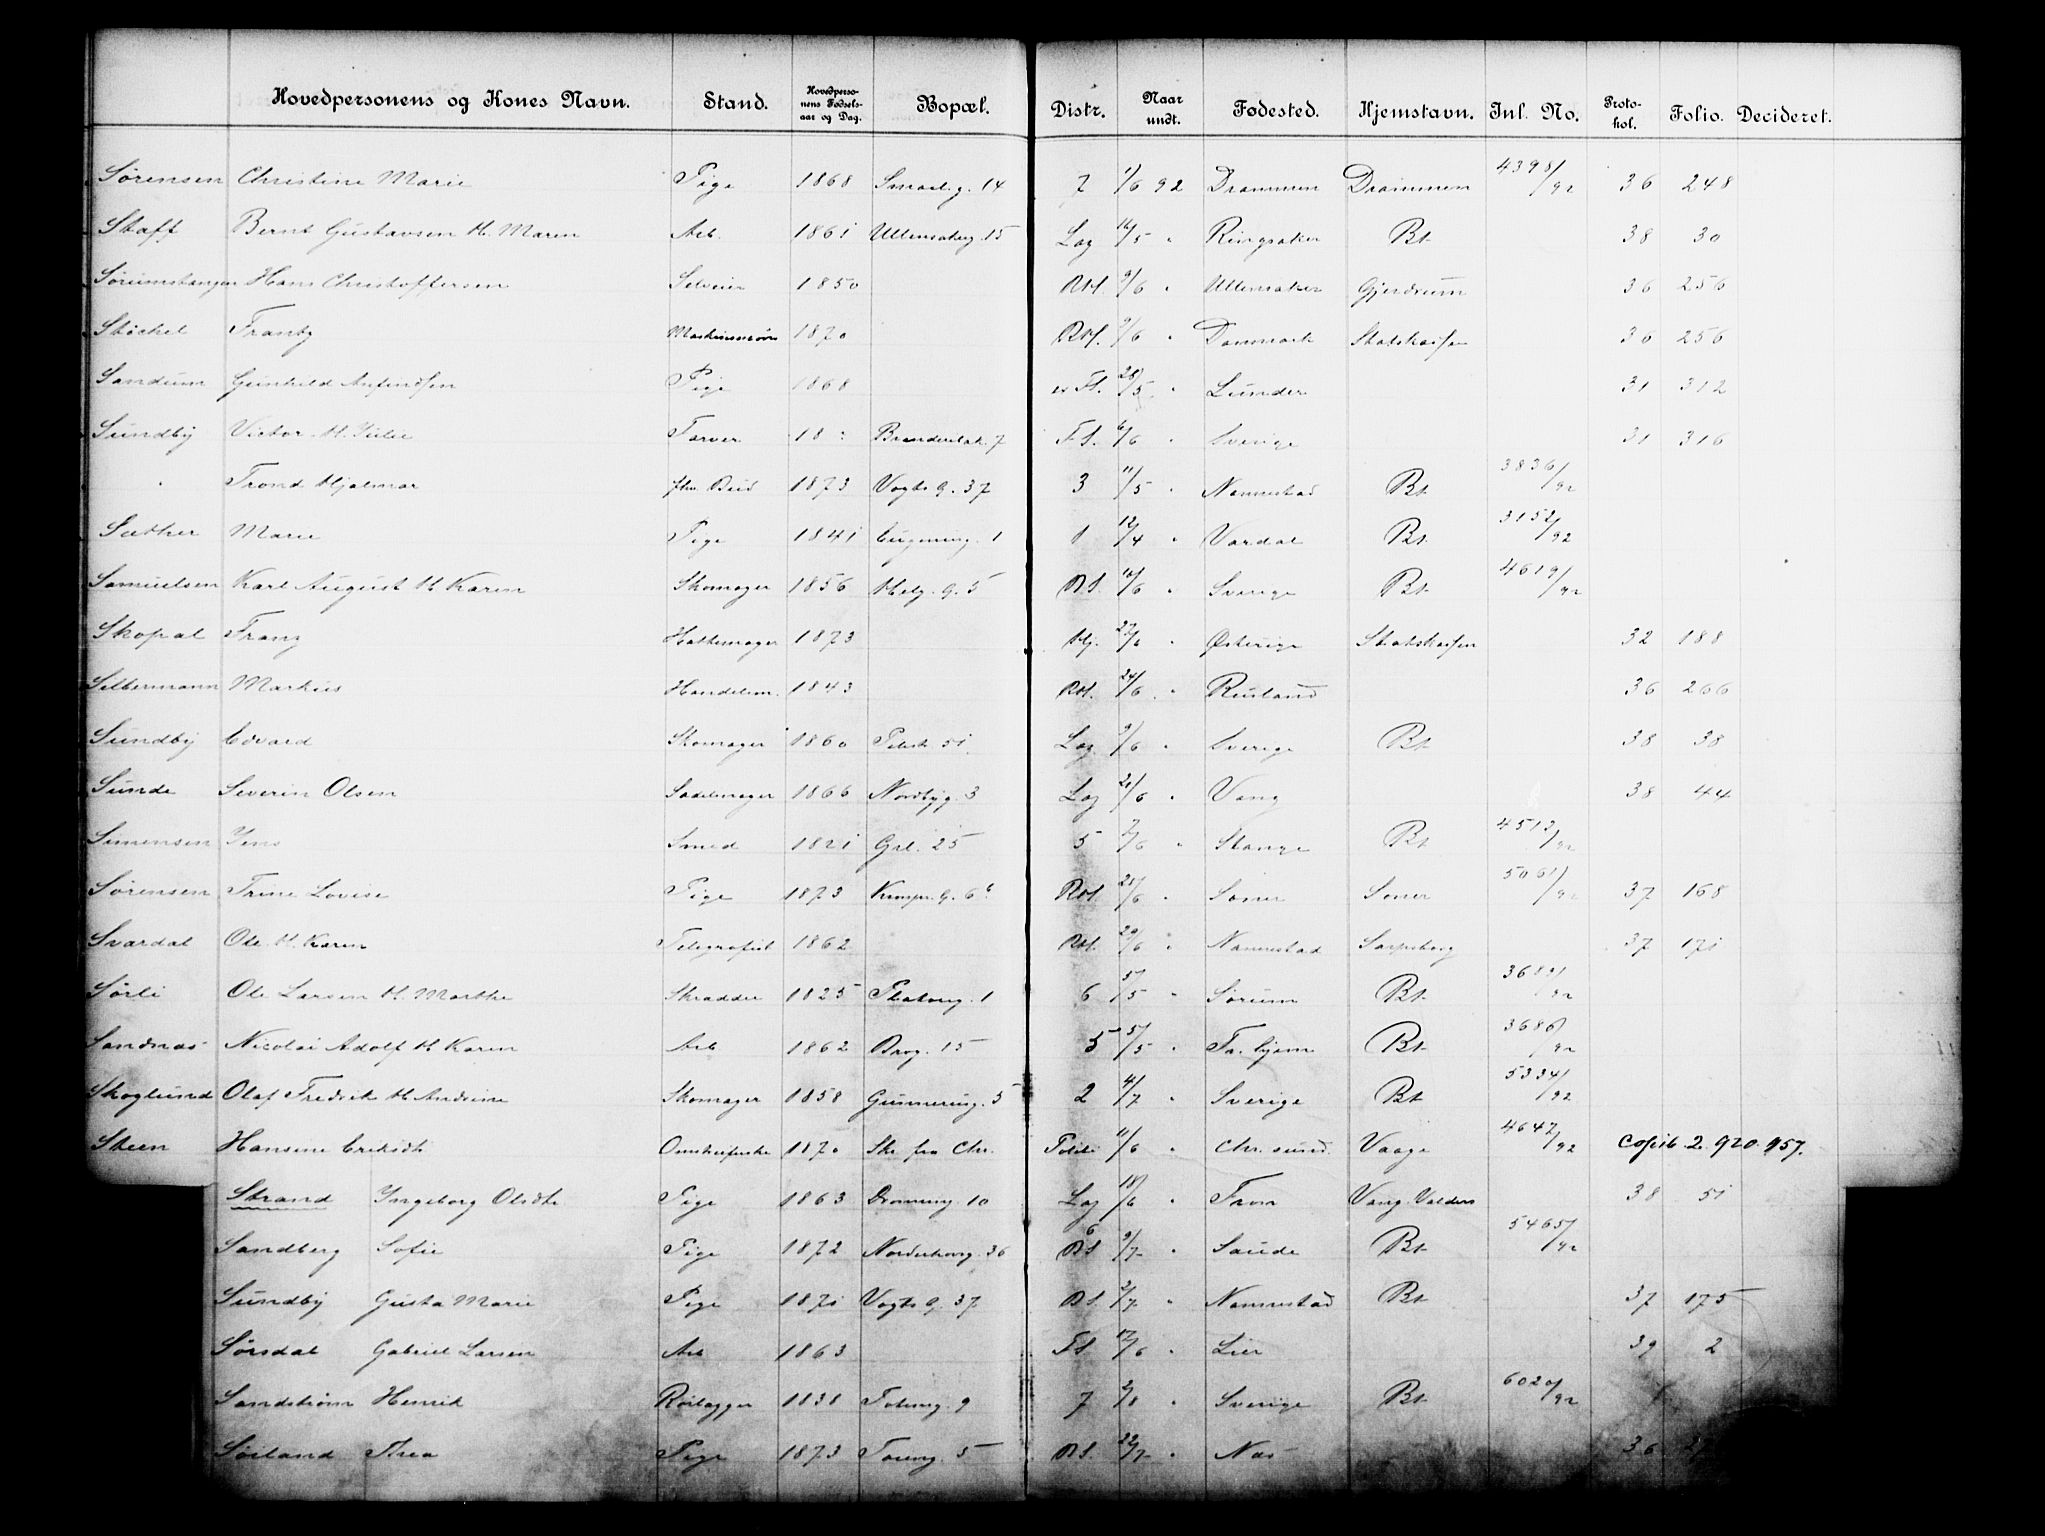 Hovedpersonens og Kones Navn. Stand. Hovedpersonens Fødselsaar og Dag. Bopæl. Distr. Naar undt. Fødested. Hjemstavn. Inl. No. Protokol. Folio. Decideret.
Sørensen Christine Marie Pige 1868 14 7 1/6 92 Drammen Drammen 4398/92 36 248
Staff Bernt Gustavsen H. Maren Arb. 1861 Ullensakerg. 15 Lag 14/5 " Ringsaker Bt. 38 30
Sørumshangen Hans Christoffersen Selveier 1850 RH. 9/6 " Ullensaker Gjerdrum 36 256
Støckel Frantz 1870 RH. 9/6 " Danmark Statskassen 36 256
Sandum Gunhild Pige 1868 28/5 " Lunder 31 312
Sundby Victor H. Julie Farver 18 : 7 FS. 6/6 " Sverige 31 316
" Trond Hjalmar fhv. Bud 1873 Vogts g. 37 3 11/5 " Nannestad Bt. 3836/92
Sæther Marie Pige 1841 Eugenieg. 1 1 12/4 " Vardal Bt. 3152/92
Samuelsen Karl August H. Karen Skomager 1856 Helg. g. 5 DS. 10/6 " Sverige Bt. 4619/92
Skopal Franz Hattemager 1873 Hj. 22/6 " Østerige Statskassen 32 188
Silbermann Markus Handelsm. 1843 RH. 24/6 " Rusland 36 266
Sundby Edvard Skomager 1860 Pilestr. 51 Lag. 9/6 " Sverige Bt. 38 38
Sunde Severin Olsen Sadelmager 1866 Nordbyg. 3 Lag 20/6 " Vang 38 44
Simensen Jens Smed 1821 Grl. 25 5 7/6 " Stange Bt. 4513/92
Sørensen Trine Lovise Pige 1873 RH. 20/6 " Soner Soner 5061/92 37 168
Svardal Ole H. Karen Telegrafist 1862 RH. 29/6 " Nannestad Sarpsborg 37 171
Sørli Ole Larsen H. Marthe Skrædder 1825 Platoug. 1 6 5/5 " Sørum Bt. 3689/92
Sandnæs Nicolai Adolf H. Karen Arb 1862 15 5 5/5 " Tr. hjem Bt. 3686/92
Skoglund Olaf Fredrik H. Andrine Skomager 1858 Gunnerusg. 5 2 4/7 " Sverige Bt. 5334/92
Steen Hansine Eriksdt. 1870 Skr. fra Chr. Politi 11/6 " Chr. sund. Vaage 4647/92 Copib. 2. 920. 957.
Strand Ingeborg Olsdt. Pige 1863 Dronning. 10 Lag 18/6 " From Vang. Valders 38 51
Sandberg Sofie Pige 1872 Norderhovg. 36 6 DS. 9/7 " Saude Bt. 5465/92
Sundby Gusta Marie Pige 1871 Vogts g. 37 DS. 2/7 " Nannestad Bt. 37 175
Sørsdal Gabriel Larsen Arb 1863 FS. 17/6 " Lier 39 2
Sandstrøm Henrik Rørlægger 1838 Toteng. 9 7 2/8 " Sverige Bt. 6020/92
Søiland Thea Pige 1873 5 DS. 22/7 " Næs 36